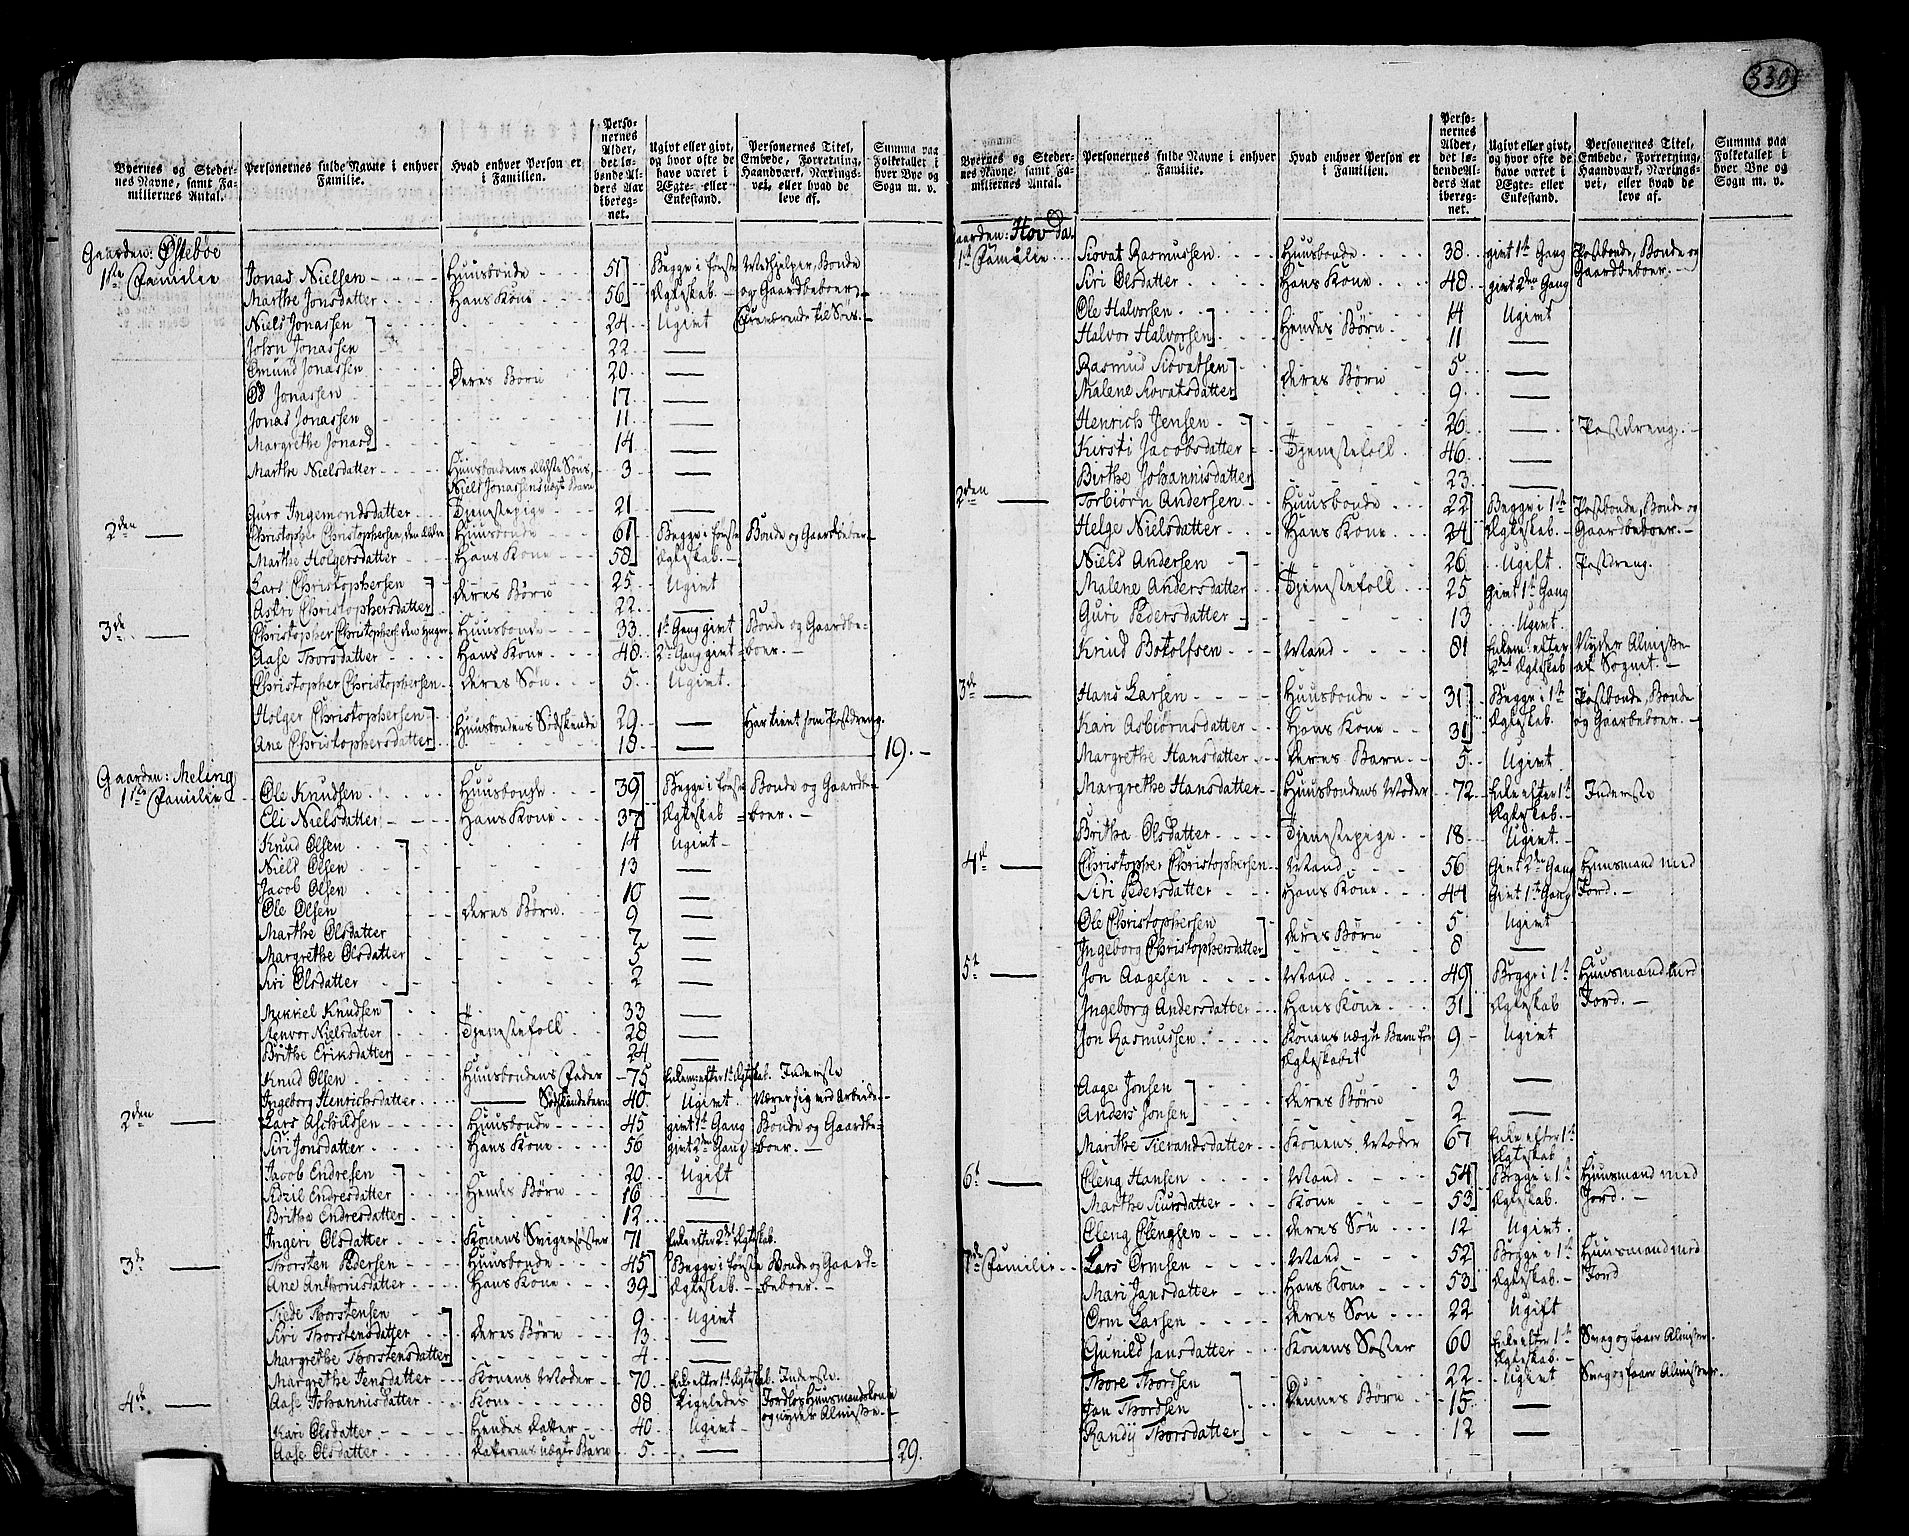 339
Byernes og Stedernes Navne, samt Familiernes Antal. | Personernes fulde Navne i enhver Familie. | Hvad enhver Person er i Familien. | Personernes Alder, det løbende Alders Aar iberegnet. | Ugivt eller givt, og hvor ofte de have været i Ægte- eller Enkestand. | Personernes Titel, Embede, Forretning, Haandværk, Næringsvei, eller hvad de leve af. | Summa paa Folketallet i hver Bye og Sogn m. v.
Gaarden: Østebøe
1ste Familie Jonas Nielsen Huusbonde 51 Begge i første Medhjelper, Bonde
Marthe Jonsdatter Hans Kone 56 Ægteskab. og Gaardbeboer
Niels Jonassen 24 Ugivt til Søes.
John Jonassen 22 —
Gmund Jonassen Deres Børn 20 —
Jonassen 17 —
Jonas Jonassen 11 —
Margrethe Jonasd 14 —
Marthe Nielsdatter Huusbondens ældste Søns, Niels Jonassens uægte Barn 3 —
Guro Ingemondsdatter Tjenestepige 21 —
2den — Christopher Christophersen, den ældre Huusbonde 61 Begge i første Bonde og Gaardbeboer
Marthe Holgersdatter Hans Kone 58 Ægteskab.
Lars Christophersen Deres Børn 25 Ugivt
Astri Christophersdatter 22 —
3de — Christopher Christophers. den Yngre Huusbonde 33 1te Gang givt Bonde og Gaardbe-
Aase Thorsdatter Hans Kone 48 2den Gang givt boer.
Christopher Christophersen Deres Søn 5 Ugivt.
Holger Christophersen Huusbondens Sødskende 29 — Har tient som Postdreng.
Ane Christophersdatter 18 — 19.
Gaarden: Meling
1ste Familie Ole Knudsen Huusbonde 39 Begge i første Bonde og Gaardbe-
Eli Nielsdatter Hans Kone 37 Ægteskab boer.
Knud Olsen 14 Ugivt
Niels Olsen 13 —
Jacob Olsen 10 —
Ole Olsen Deres Børn. 9 —
Marthe Olsdatter 7 —
Margrethe Olsdatter 5 —
Siri Olsdatter 2 —
Mikkel Knudsen 33 —
Stenvor Nielsdatter Tjenestefolk 28 —
Brithe Eriksdatter 24 —
Knud Olsen Huusbondens Fader 75 Enkem: efter 1te Ægtskab. Inderste
Ingeborg Henrichsdatter — Sødskendebarn 40 Ugivt. Nærer sig ved Arbeide
2den — Lars Aschildsen Huusbonde 45 givt 1te Gang Bonde og Gaardbe-
Siri Jonsdatter Hans Kone 56 givt 2den Gang boer.
Jacob Endresen 20 Ugift
Sidzil Endresdatter Hendes Børn 16 —
Britha Endresdatter 12 —
Ingeri Olsdatter Konens Svigersøster 71 Enke efter 2det Ægteskab.
3de — Thorsten Pedersen Huusbonde 45 Begge i første Bonde og Gaard-
Ane Anthonisdatter Hans Kone 39 Ægteskab. beboer.
Tiede Thorstensen 9 Ugivt
Siri Thorstensdatter Deres Børn 13 —
Margrethe Thorstensdatter 4 —
Margrethe Jensdatter Konens Moder 70 Enke efter 1te Ægtskab. Inderste.
4de — Aase Johannisdatter Kone 88 Ligeledes Jordløs Huusmandskone og nyder Almisse
Kari Olsdatter Hendes Datter 40 Ugivt
Aase Olsdatter Datterens uægte Barn 5 — 29.
Byernes og Stedernes Navne, samt Familiernes Antal. | Personernes fulde Navne i enhver Familie. | Hvad enhver Person er i Familien. | Personernes Alder, det løbende Alders Aar iberegnet. | Ugivt eller givt, og hvor ofte de have været i Ægte- eller Enkestand. | Personernes Titel, Embede, Forretning, Haandværk, Næringsvei, eller hvad de leve af. | Summa paa Folketallet i hver Bye og Sogn m. v.
Gaarden: Hovda.
1te Familie Siovat Rasmussen Huusbonde 38 givt 1te Gang Postbonde, Bonde og
Siri Olsdatter Hans Kone 48 givt 2den Gang Gaardbeboer.
Ole Halvorsen Hendes Børn 14 Ugivt
Halvor Halvorsen 11 —
Rasmus Siovatsen Deres Børn 5 —
Malene Siovatsdatter 9 —
Henrich Jensen 26 — Postdreng.
Kirsti Jacobsdatter Tjenestefolk 46 —
Birthe Johannisdatter 23 —
2den — Torbiørn Andersen Huusbonde 22 Begge i 1te Postbonde, Bonde og
Helge Nielsdatter Hans Kone 24 Ægteskab. Gaardbeboer.
Niels Andersen 26 Ugift Postdreng.
Malene Andersdatter Tjenestefolk 25 givt 1te Gang
Guri Pedersdatter 13 Ugivt
Knud Botolfsen Mand 81 Enkem. efter 2det Ægteskab Nyder Almisse af Sognet.
3de — Hans Larsen Huusbonde 31 Begge i 1te Postbonde, Bonde
Kari Asbiørnsdatter Hans Kone 31 Ægteskab. og Gaarbeboer.
Margrethe Hansdatter Deres Barn 5 Ugivt
Margrethe Hansdatter Huusbondens Moder 72 Enke efter 1te Ægteskab. Inderste
Britha Olsdatter Tjenestepige 18 Ugivt.
4de — Christopher Christophersen Mand 56 Givt 2den Gang Huusmand med
Siri Pedersdatter Hans Kone 44 Givt 1te Gang Jord.
Ole Christophersen Deres Børn 5 Ugivt
Ingeborg Christophersdatter 8 —
5te — Jon Aagesen Mand 49 Begge i 1te Huusmand med
Ingeborg Andersdatter Hans Kone 31 Ægteskab Jord.
Jon Rasmussen Konens uægte Barn før Ægteskabet 9 Ugivt
Aage Jonsen Deres Børn 3 —
Anders Jonsen 2 —
Marithe Tierandsdatter Konens Moder 67 Enke efter 1te Ægteskab
6te — Eleng Hansen Mand 54 Begge i 1te Huusmand med
Marthe Siursdatter Kone 53 Ægteskab. Jord.
Eleng Elengsen Deres Søn 12 Ugivt.
7de Familie Lars Ormsen Mand 52 Begge i 1te Huusmand med
Mari Jansdatter Hans Kone 53 Ægteskab. Jord
Orm Larsen Deres Søn 22 Ugift
Gunild Jansdatter Konens Søster 60 Enke efter 1te Ægteskab. Svag og faaer Almisse.
Thore Thordsen 22 Ugivt Svag og faaer Almisse.
Jan Thordsen Dennes Børn 15 —
Randij Thorsdatter 12 —